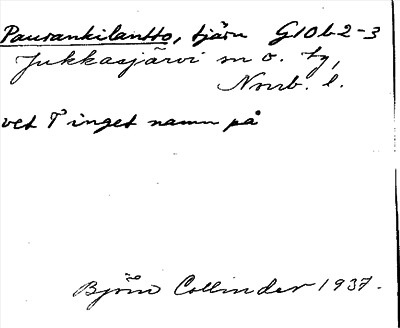 Pausankilantto, tjärn G10b2-3
Jukkasjärvi sn o. tg,
Nrrb. l.
vet T inget namn på
Björn Collinder 1937.